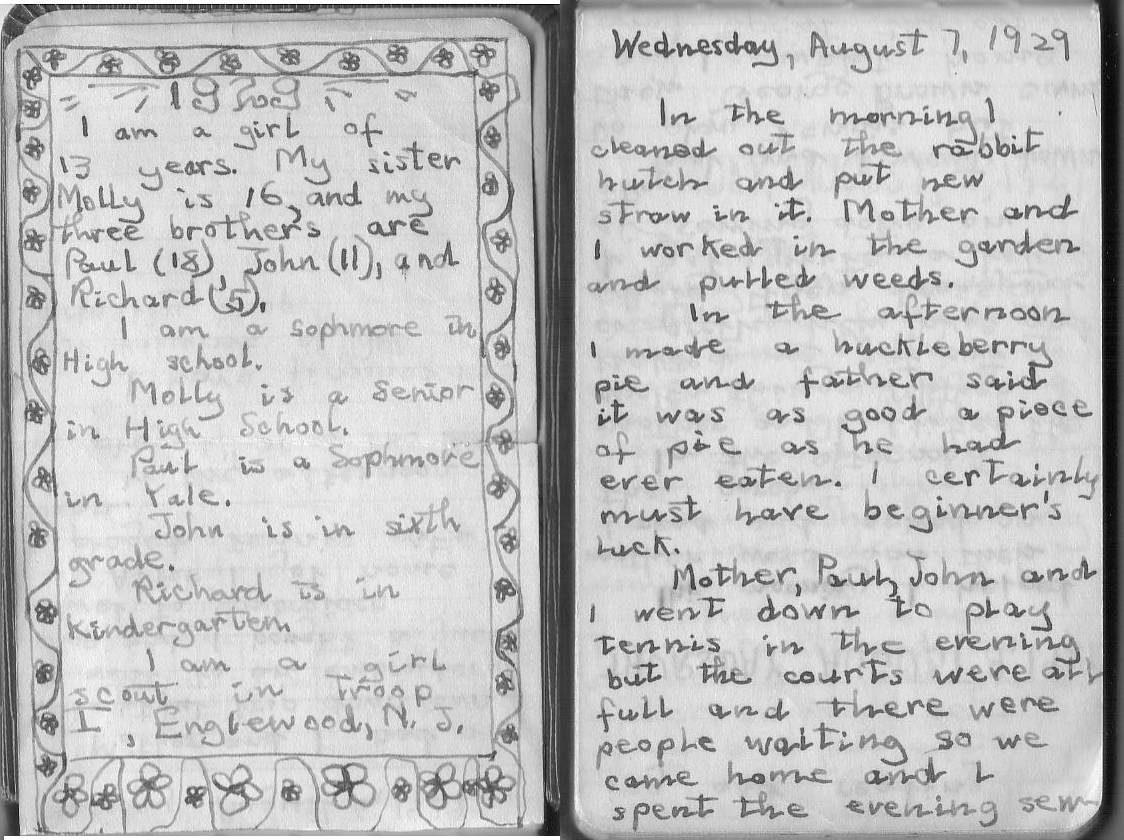 1929
I am a girl of
13 years. My sister
Molly is 16, and my
three brothers are
Paul (18), John (11), and
Richard (5).
I am a sophmore in
High school.
Molly is a senior
in High School.
Paul is a Sophmore
in Yale.
John is in sixth
grade.
Richard is in
Kindergarten
I am a girl
scout in Troop
I, Englewood, N. J.
Wednesday, August 7, 1929
In the morning I
cleaned out the rabbit
hutch and put new
straw in it. Mother and
I worked in the garden
and pulled weeds.
In the afternoon
I made a huckleberry
pie and father said
it was as good a piece
of pie as he had
ever eaten. I certainly
must have beginner's
luck.
Mother, Paul, John and
I went down to play
tennis in the evening
but the courts were all
full and there were
people waiting so we
came home and I
spent the evening sew-